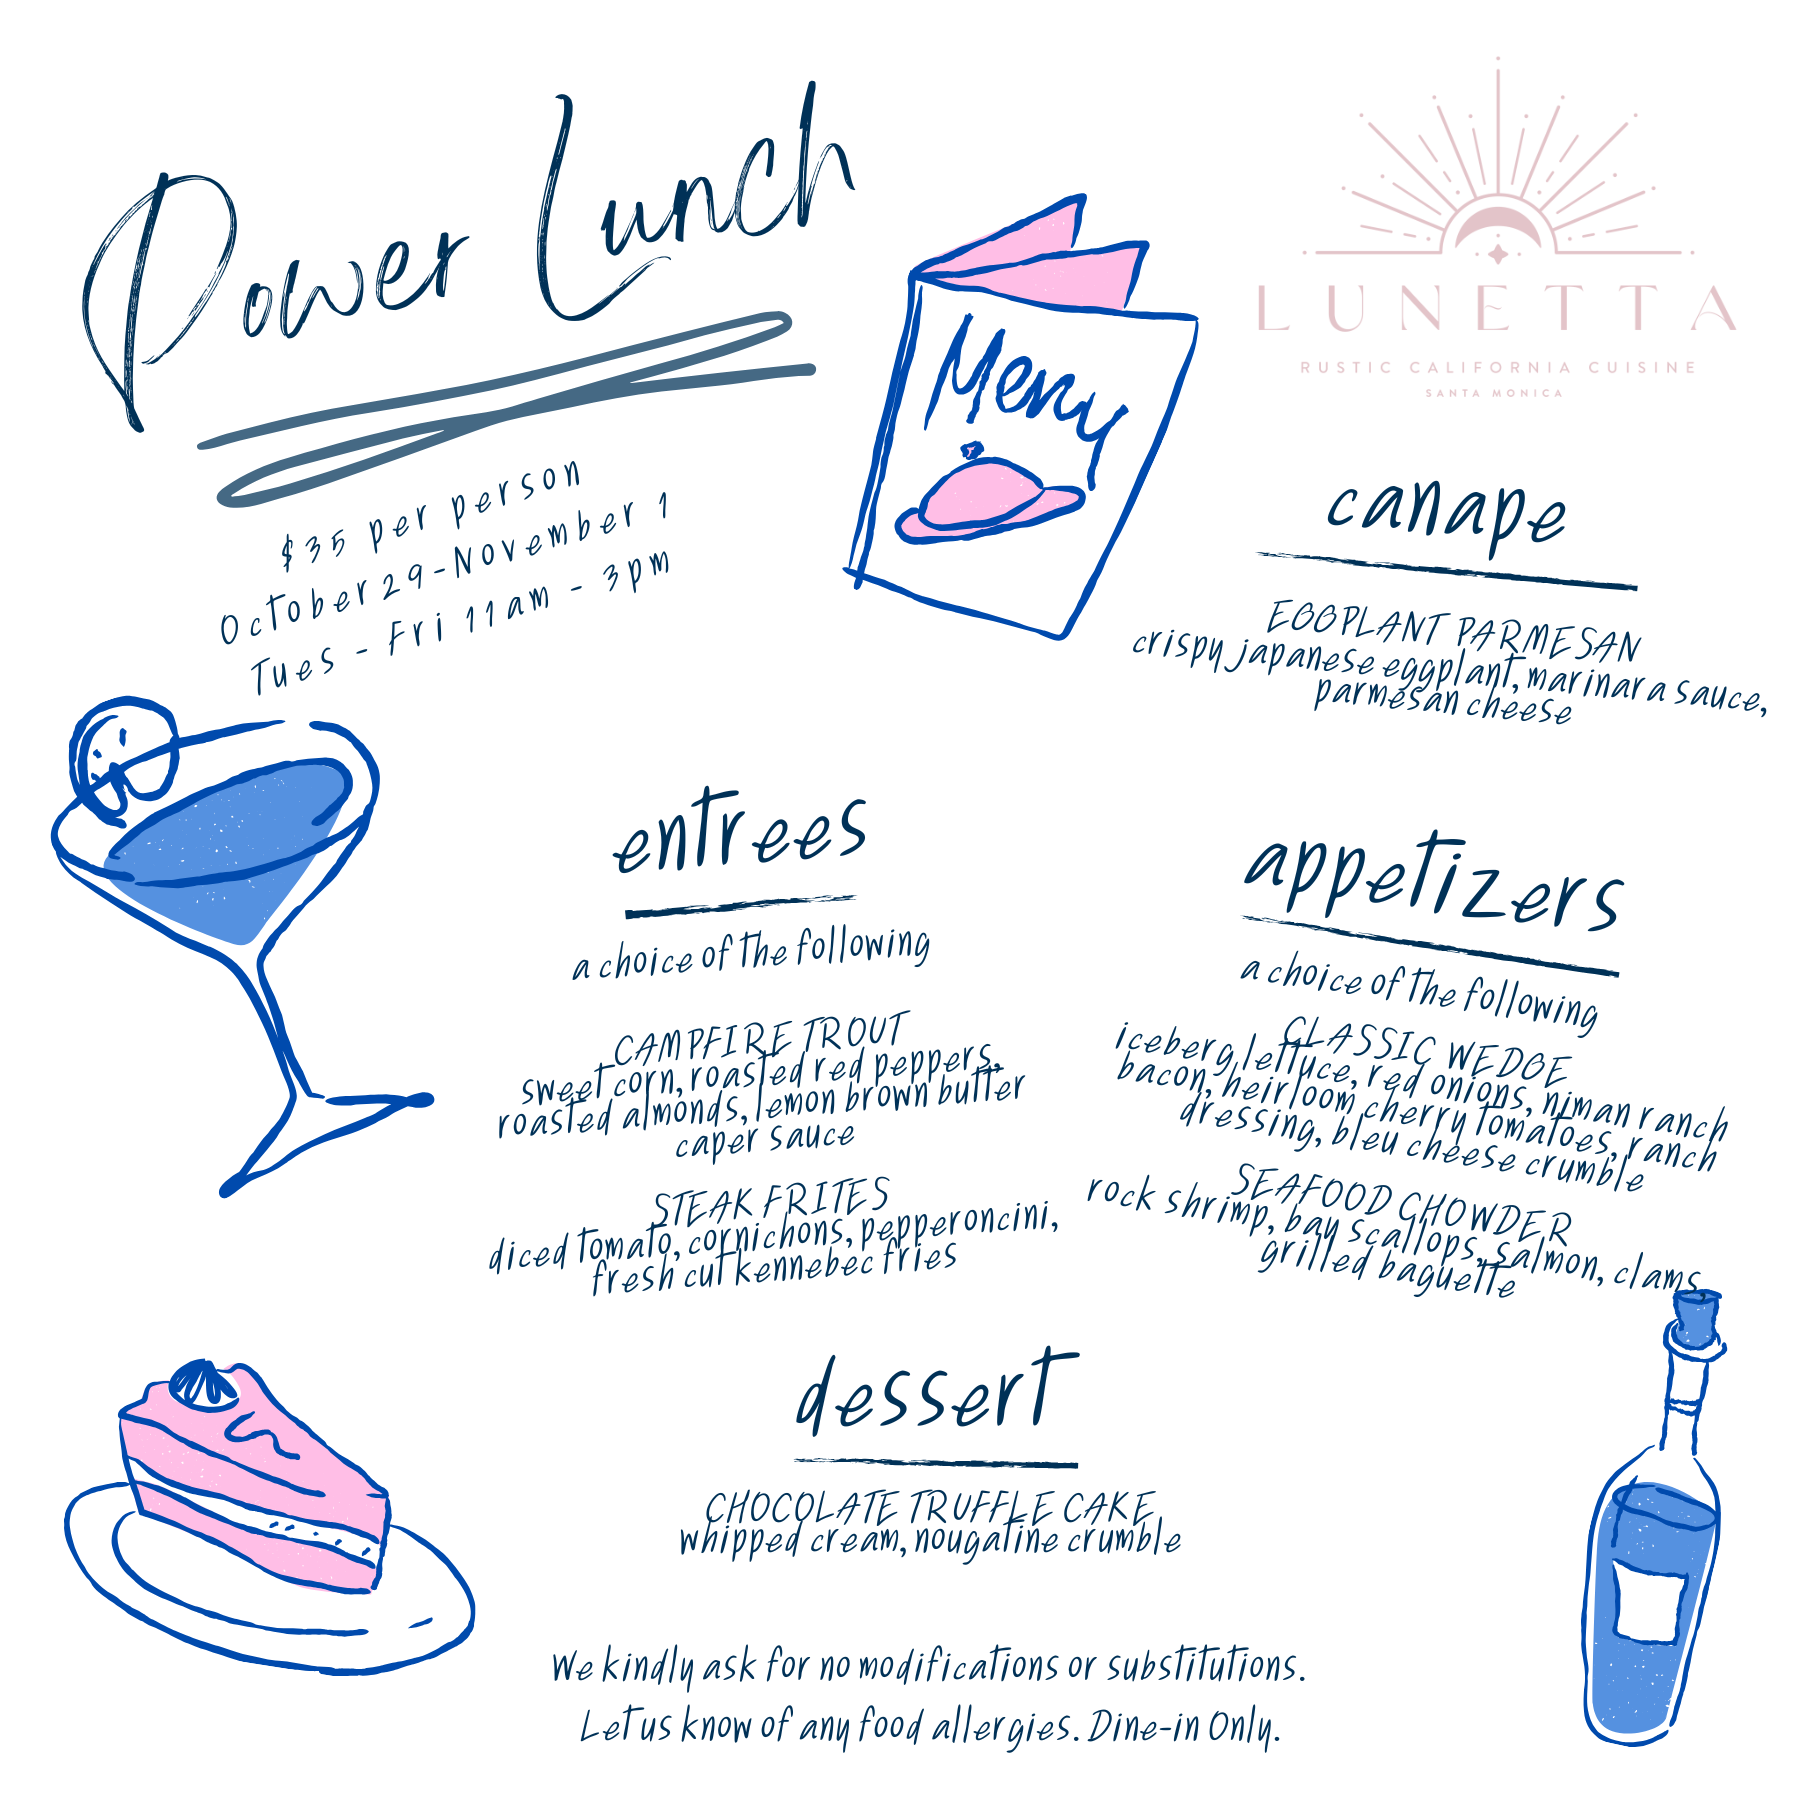 Power Lunch
$35 per person
October 29-November 1
Tues - Fri 11am - 3pm
Menu
LUNETTA
RUSTIC CALIFORNIA CUISINE
SANTA MONICA
canape
EGGPLANT PARMESAN
crispy japanese eggplant, marinara sauce,
parmesan cheese
entrees
a choice of the following
CAMPFIRE TROUT
sweet corn, roasted red peppers,
roasted almonds, lemon brown butter
caper sauce
STEAK FRITES
diced tomato, cornichons, pepperoncini,
fresh cut kennebec fries
appetizers
a choice of the following
CLASSIC WEDGE
iceberg lettuce, red onions, niman ranch
bacon, heirloom cherry tomatoes, ranch
dressing, bleu cheese crumble
SEAFOOD CHOWDER
rock shrimp, bay scallops, salmon, clams,
grilled baguette
dessert
CHOCOLATE TRUFFLE CAKE
whipped cream, nougatine crumble
We kindly ask for no modifications or substitutions.
Let us know of any food allergies. Dine-in Only.